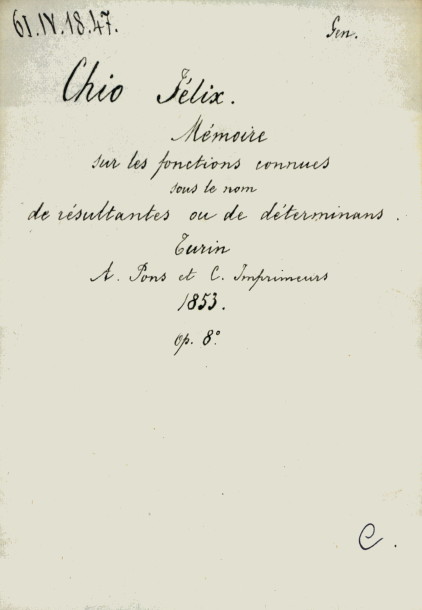 61.IV.18.47.
Gen.
Chio Félix.
Mémoire
sur les fonctions connues
sous le nom
de résultantes ou de déterminans.
Turin
A. Pons et C. Imprimeurs
1853.
op. 8°
C.